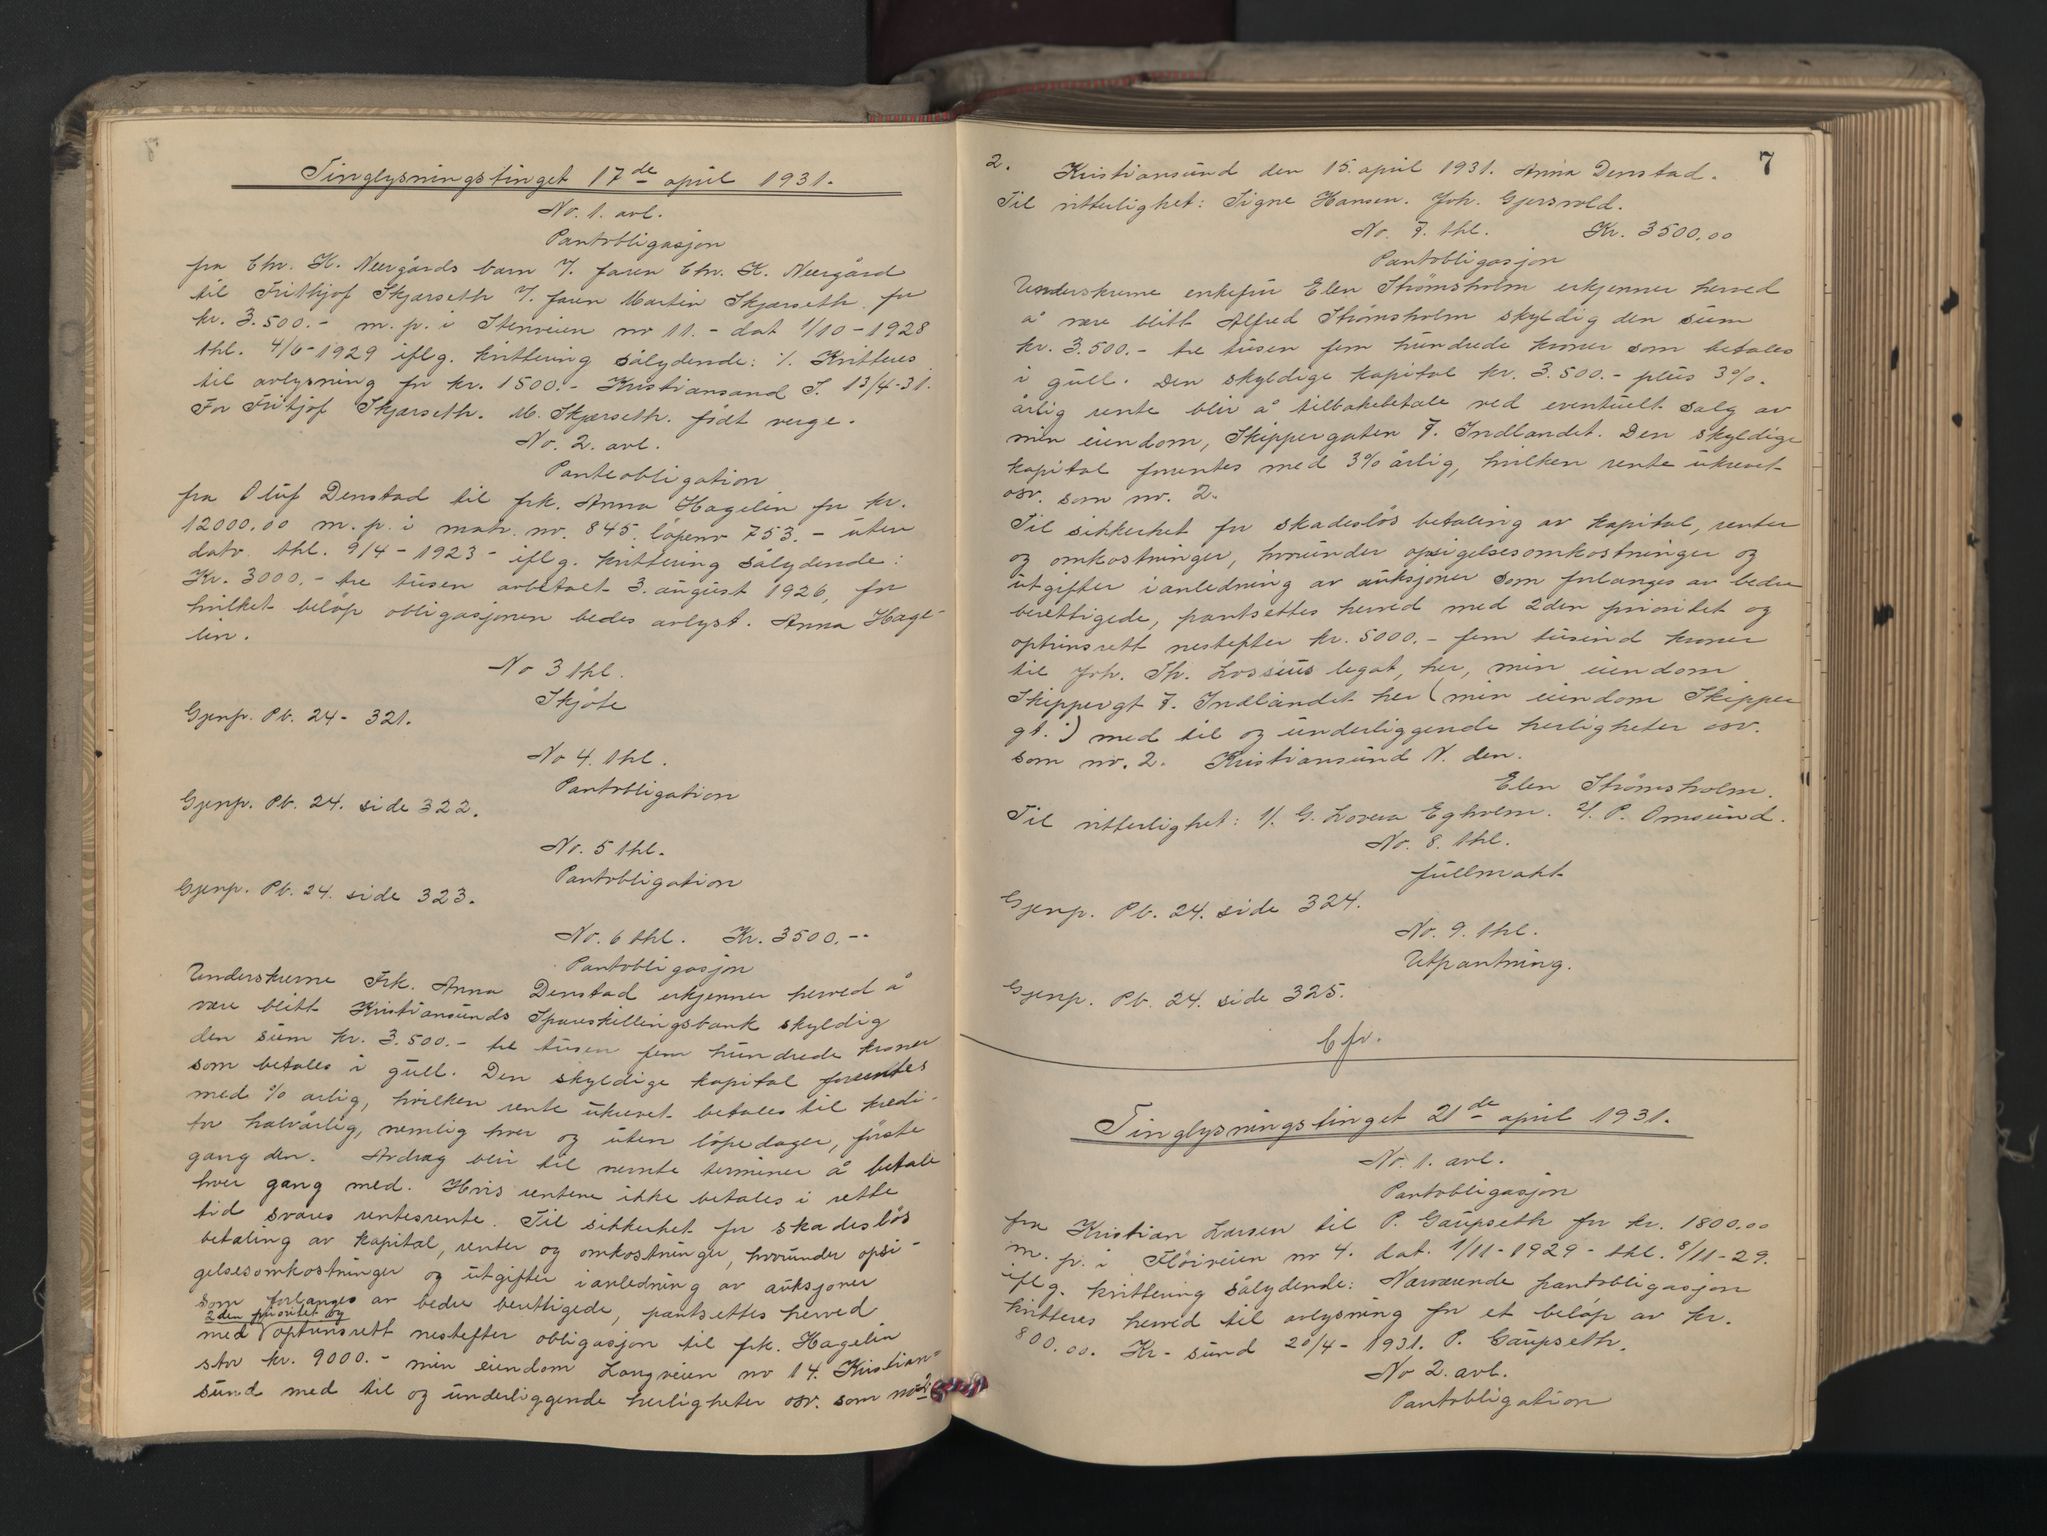 Tinglysningstinget 17de april 1931.
No. 1. avl.
Pantobligasjon
fra Chr. H. Neergårds barn v/ faren Chr. K. Neergård
til Frithjof Skjærseth v/ faren Martin Skjærseth for
kr. 3.500.- m. p. i Stenveien nr 11. - dat 1/10 - 1928
thl. 4/6 - 1929 iflg. kvittering sålydende: ·/. Kvitteres
til avlysning for kr. 1500.- Kristiansand S. 13/4-31.
For Fritjof Skjærseth. M. Skjærseth. født verge.
No. 2. avl.
Panteobligation
fra Oluf Denstad til frk. Anna Hagelin for kr.
12000.00 m. p. i matr. nr. 845. løpenr 753. - uten
dato. thl. 9/4 - 1923 - iflg. kvittering sålydende:
Kr. 3000.- tre tusen avbetalt 3. august 1926, for
hvilket beløp obligasjonen bedes avlyst. Anna Hage-
lin.
No 3 thl.
Skjøte
Gjenp. Pb. 24 - 321.
No 4. thl.
Pantobligation
Gjenp. Pb. 24. side 322.
No. 5 thl.
Pantobligation
Gjenp. Pb. 24. side 323.
No. 6 thl. Kr. 3500.-
Pantobligasjon
Underskrevne Frk. Anna Denstad erkjenner herved å
være blitt Kristiansunds Spareskillingsbank skyldig
den sum kr. 3.500.- tre tusen fem hundrede kroner
som betales i gull. Den skyldige kapital forrentes
med % årlig, hvilken rente ukrevet betales til kredi-
tor halvårlig, nemlig hver og uten løpedager, første
gang den. Avdrag blir til nevnte terminer å betale
hver gang med. Hvis rentene ikke betales i rette
tid svares rentesrente. Til sikkerhet for skadesløs
betaling av kapital, renter og omkostninger, herunder opsi-
gelsesomkostninger og utgifter i anledning av auksjoner
som forlanges av bedre berettigede, pantsettes herved
2den prioritet og
med optrinsrett nestefter obligasjon til frk. Hagelin
stor kr. 9000.- min eiendom Langveien nr 14. Kristian-
sund med til og underliggende herligheter osv. som nr 2
7
2. Kristiansund den 15. april 1931. Anna Denstad.
Til vitterlighet: Signe Hansen. Joh. Gjersvold.
No. 7. thl. Kr. 3500,00
Pantobligasjon
Underskrevne enkefru Elen Strømsholm erkjenner herved
å være blitt Alfred Strømsholm skyldig den sum
kr. 3.500.- tre tusen fem hundrede kroner som betales
i gull. Den skyldige kapital kr. 3.500.- plus 3%.
årlig rente blir å tilbakebetale ved eventuelt salg av
min eiendom, Skippergaten 7. Indlandet. Den skyldige
kapital forrentes med 3% årlig, hvilken rente ukrevet
osv. som nr. 2.
Til sikkerhet for skadesløs betaling av kapital, renter
og omkostninger, herunder opsigelsesomkostninger og
utgifter i anledning av auksjoner som forlanges av bedre
berettigede, pantsettes herved med 2den prioritet og
optrinsrett nestefter kr. 5000.- fem tusind kroner
til Joh. Th. Lossius legat, her, min eiendom
Skippergt 7. Indlandet her (min eiendom Skipper
gt. i) med til og underliggende herligheter osv.
som nr. 2. Kristiansund N. den.
Elen Strømsholm.
Til vitterlighet: 1/. G. Egholm. 2/. P. Omsund.
No. 8. thl.
fullmakt
Gjenp. Pb. 24. side 324.
No. 9. thl.
Utpantning.
Gjenp. Pb. 24. side 325.
Cfr.
Tinglysningstinget 21de april 1931.
No. 1. avl.
Pantobligasjon
fra Kristian Larsen til P. Gaupseth for kr. 1800.00
m. p. i Fløiveien nr 4. dat. 1/11 - 1929 - thl. 8/11 - 29.
iflg. kvittering sålydende: Nærværende pantobligasjon
kvitteres herved til avlysning for et beløp av kr.
800.00. Kr-sund 20/4 - 1931. P. Gaupseth.
No 2. avl.
Pantobligation